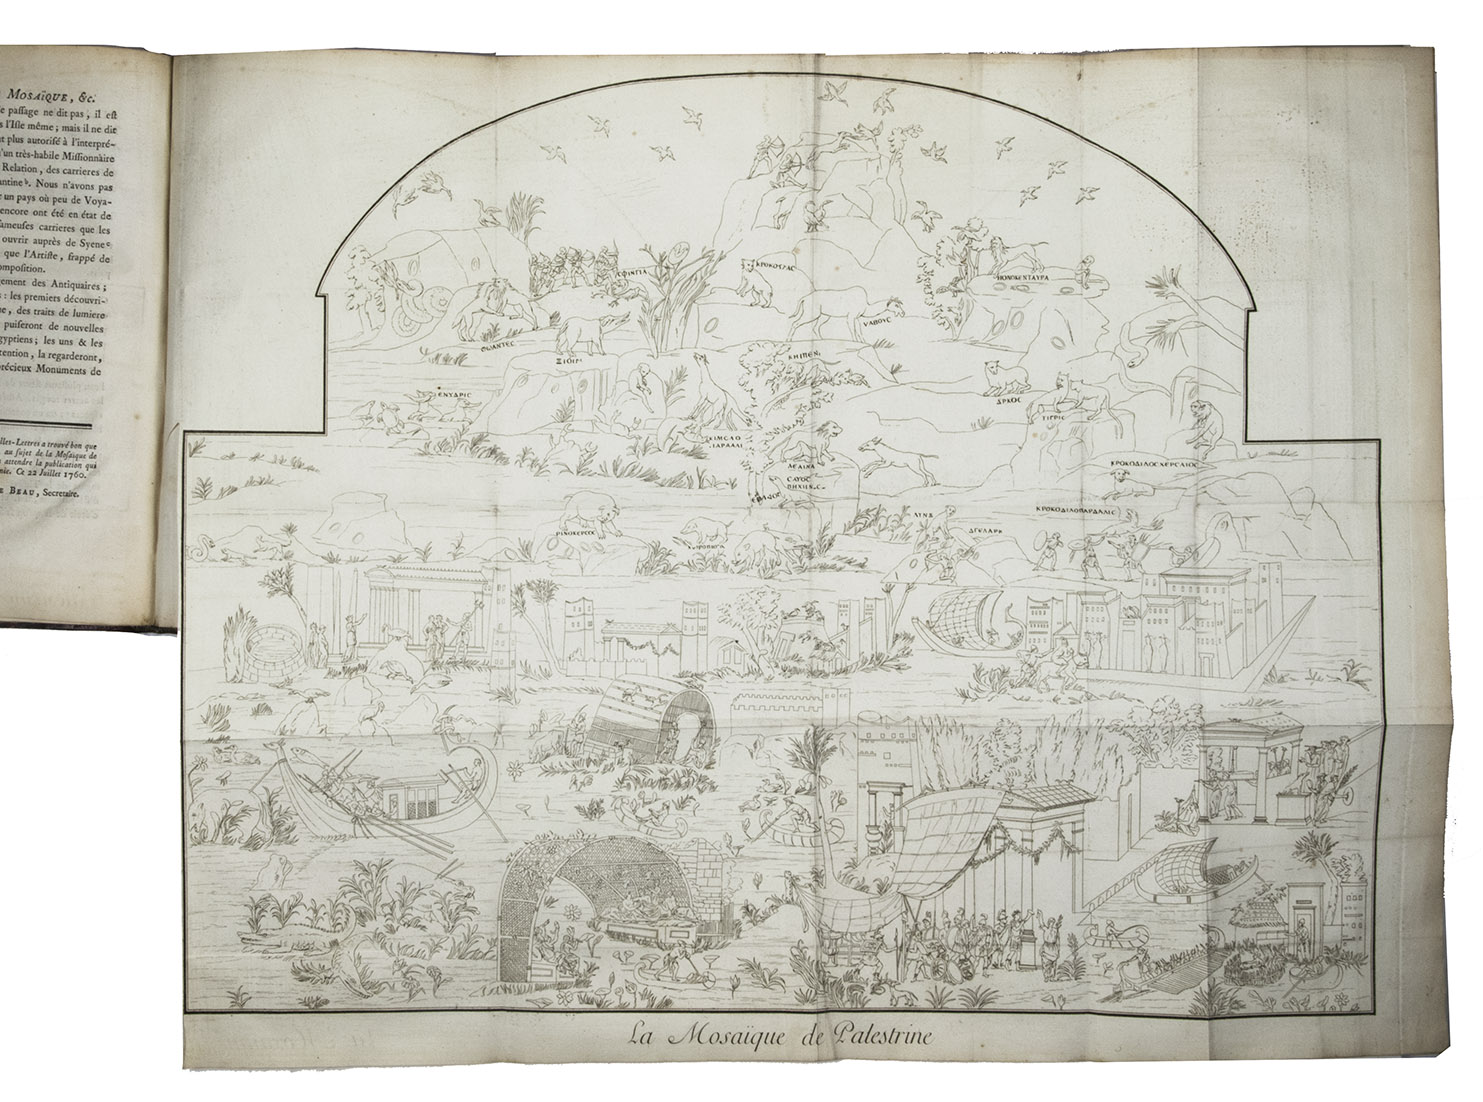 MOSAÏQUE, &c.
e paſſage ne dit pas, il eſt
s l'Iſle même; mais il ne dit
t plus autoriſé à l'interpré-
'un très-habile Miſſionnaire
Relation, des carrieres de
antine. Nous n'avons pas
r un pays où peu de Voya-
encore ont été en état de
ameuſes carrieres que les
ouvrir auprès de Syene
que l'Artiſte, frappé de
ompoſition.
gement des Antiquaires;
: les premiers découvri-
e, des traits de lumiere
puiſeront de nouvelles
gyptiens; les uns & les
tention, la regarderont,
précieux Monuments de
lles-Lettres a trouvé bon que
au ſujet de la Moſaïque de
attendre la publication qui
nie. Ce 22 Juillet 1760.
E BEAU, Secretaire.
CΦΙΝΓΙΑ
ΚΡΟΚΟΤΤΑC
ΗΟΝΟΚΕΝΤΑΥΡΑ
ΝΑΒΟΥC
ΞΙΟΙΓ
ΚΗΙΠΕΝ
ΕΝΥΔΡΙC
ΑΡΚΟC
ΤΙΓΡΙC
ΛΕΑΙΝΑ
CΑΥΟC
ΚΡΟΚΟΔΙΛΟC ΧΕΡCΑΙΟC
ΚΡΟΚΟΔΙΛΟΠΑΡΔΑΛΙC
ΡΙΝΟΚΕΡΩC
ΛΥΝΞ
La Mosaïque de Palestrine